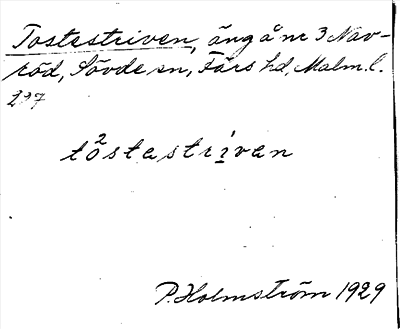 Tostestriven, äng å nr 3 Nav-
röd, Sövde sn, Färs hd, Malm. l.
297
tòstestri̱ven
P. Holmström 1929